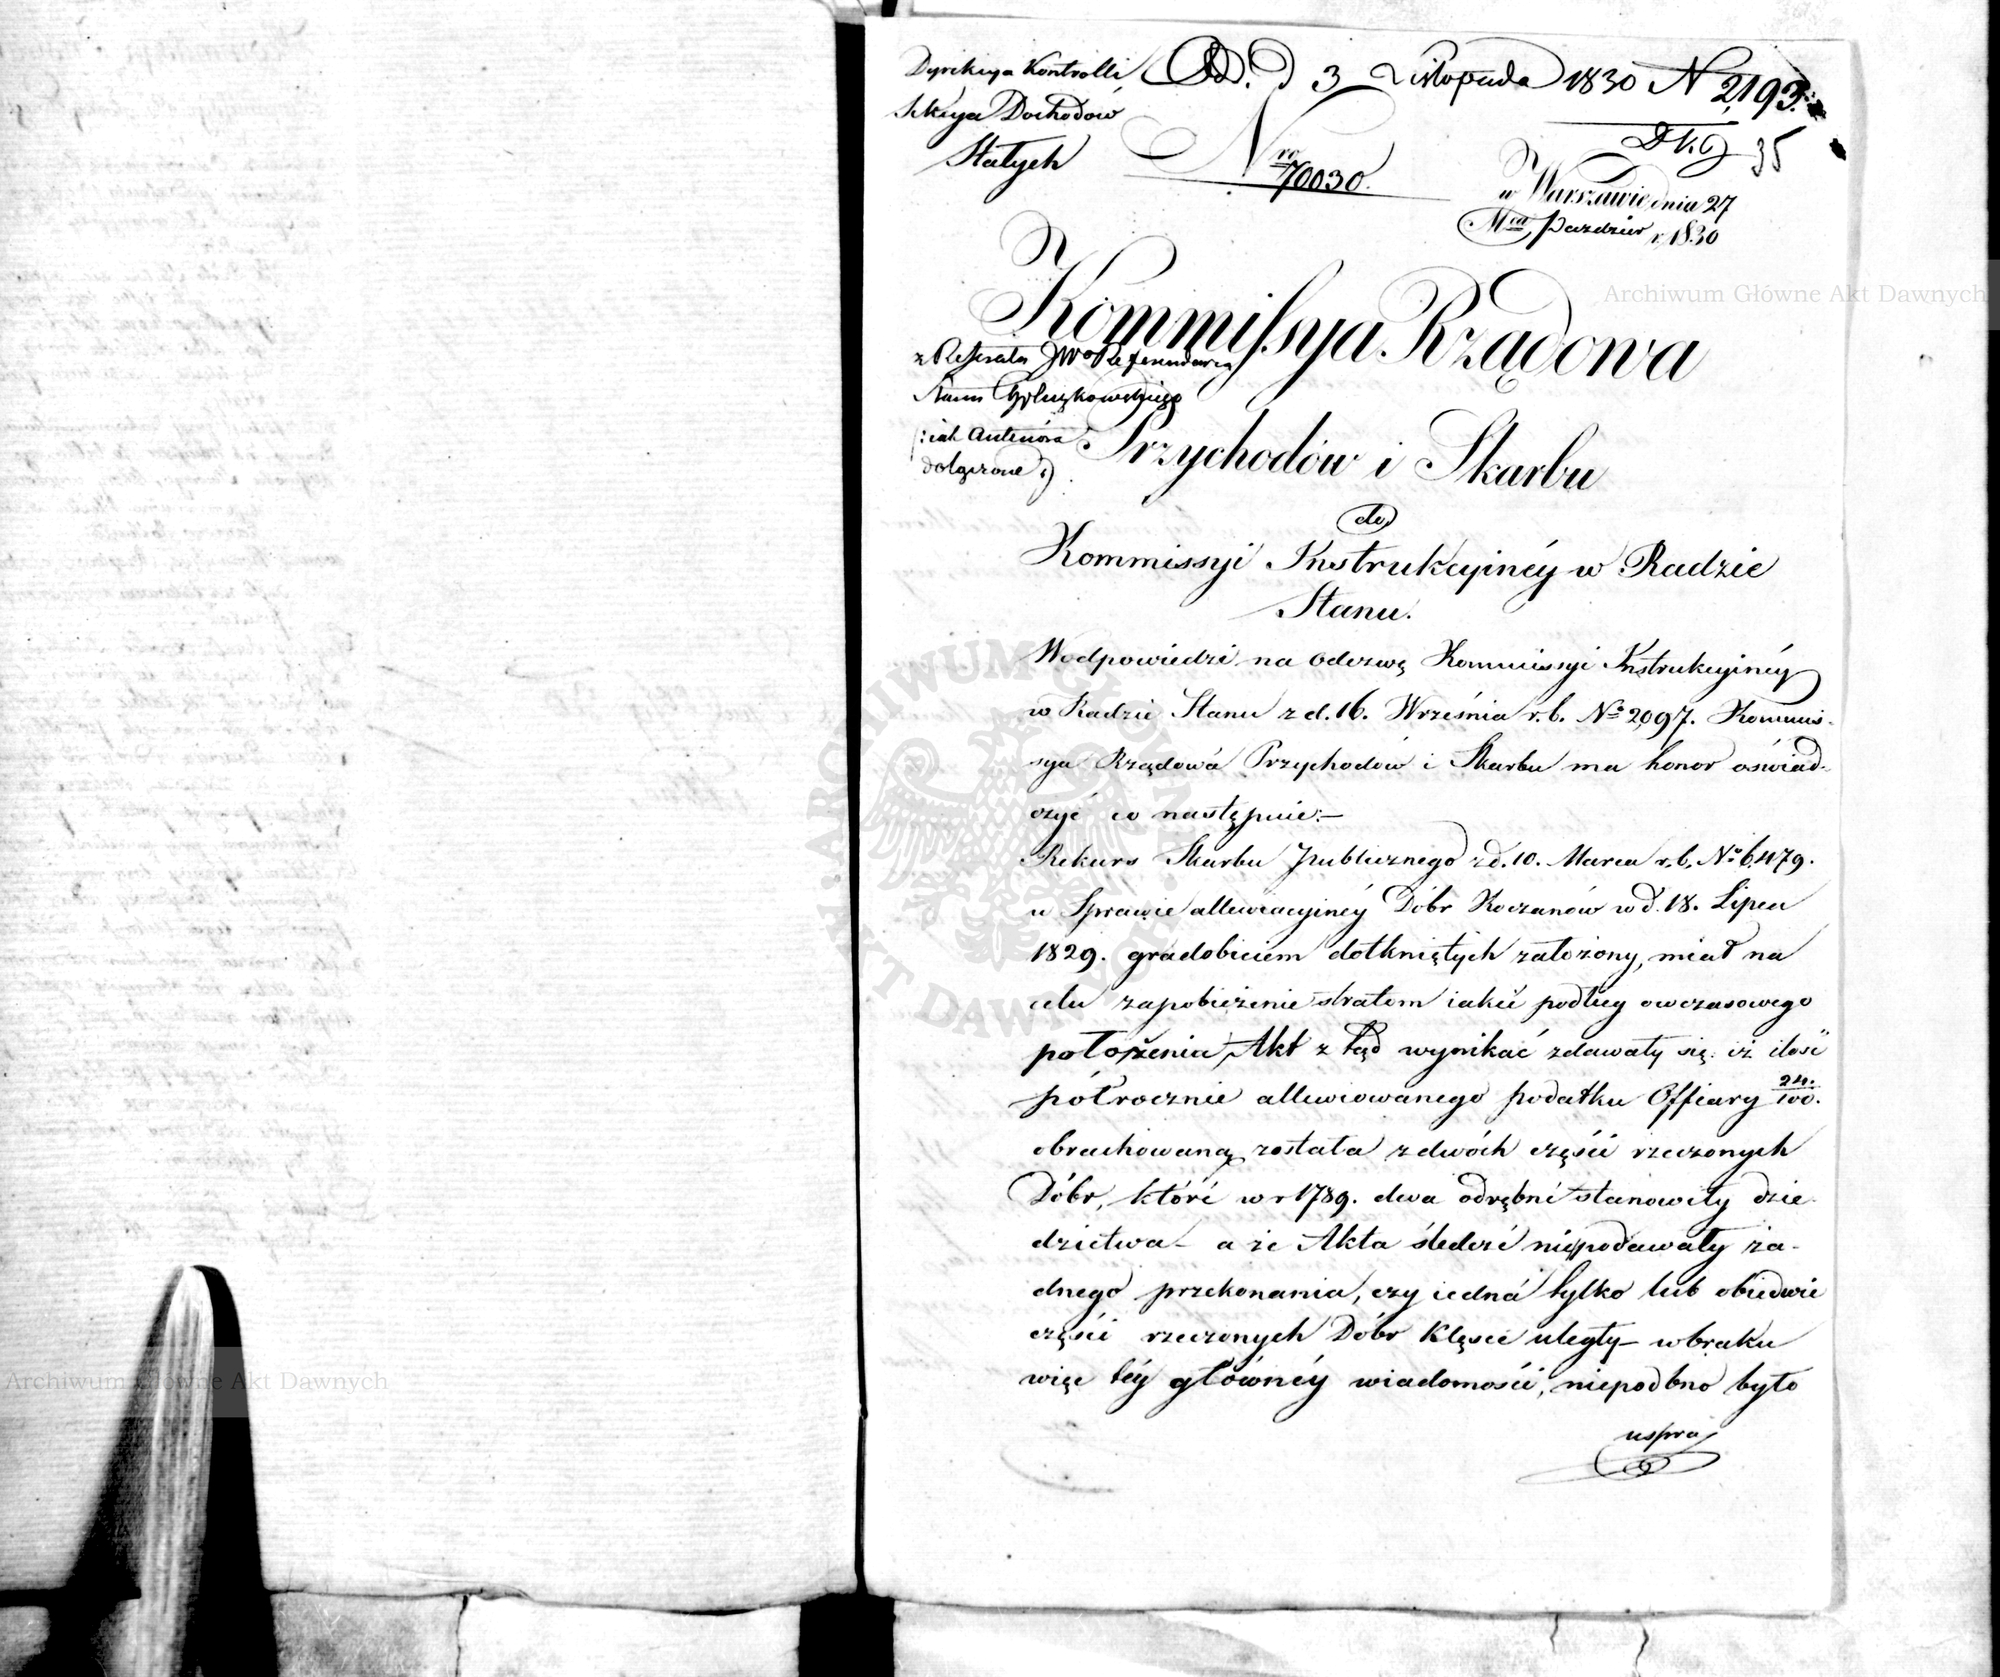 Dyrekcya Kontrolli
Sekcya Dochodów
Stałych
Od. d 3 Listopada 1830 N 2193.
DKG 35
Nro 70030.
w Warszawie dnia 27
Mca Pazdzier r. 1830
Kommissya Rządowa
z Referatu JWo Referendarza
Stanu
:iak Antenora
dołączone :)
Przychodów i Skarbu
do
Kommissyi Instrukcyinéy w Radzie
Stanu.
W odpowiedzi na odezwę Kommissyi Instrukcyinéy
w Radzie Stanu z d. 16. Września r. b. No 2097. Kommis-
sya Rządowa Przychodów i Skarbu ma honor oświad-
czyć co następuie:—
Rekurs Skarbu Publicznego z d. 10. Marca r. b. No 6479.
w Sprawie allewiacyinéy Dóbr Koczanów w d. 18. Lipca
1829. gradobiciem dotkniętych założony, miał na
celu zapobieżenie stratom iakié podług owczasowego
położenia Akt z tąd wynikać zdawały się: iż ilość
półrocznie allewiowanego podatku Offiary 24./100.
obrachowaną została z dwóch części rzeczonych
Dóbr, któré w r 1789. dwa odrębné stanowiły dzie-
dzictwa — a że Akta śledczé niepodawały ża-
dnego przekonania, czy iedná tylko lub obiedwie
części rzeczonych Dóbr klęsce uległy — w braku
więc téy głównéy wiadomości, niepodbno było
uspra
Archiwum Główne Akt Dawnych
Archiwum Główne Akt Dawnych
ARCHIWUM GŁÓWNE AKT DAWNYCH